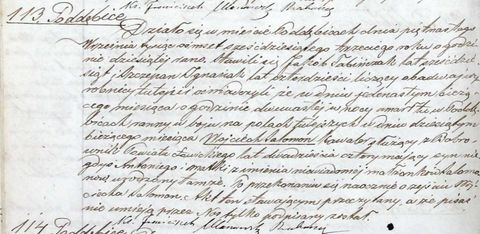 Ks. Franciszek
113. Poddębice. Działo się w mieście Poddębicach dnia piętnastego
Września tysiąc ośmset sześćdziesiątego trzeciego roku o godzi
nie dziesiątej rano. Stawili się Jakób lat sześćdzie
siąt i Szczepan Ignasiak lat czterdzieści liczący obadwaj wy
robnicy tutejsi i oświadczyli że w dniu jedenastym bieżą
cego miesiąca o godzinie dwunastej w nocy umarł tu w Podd
bicach ranny w boju na polach tutejszych w dniu dziesiątym
bieżącego miesiąca Wojciech Salamon Kawaler służący z Dobro
Powiatu lat dwadzieścia cztery mający syn nie
gdyś Antoniego i matki z imienia niewiadomej małżonków Salamo
nów urodzony tamże. Po przekonaniu się naocznie o zejściu Woj
ciecha Salamon, Akt ten stawającym przeczytany, a że pisać
nie umieją przez Nas tylko podpisany został.
114. Poddębice Ks. Franciszek